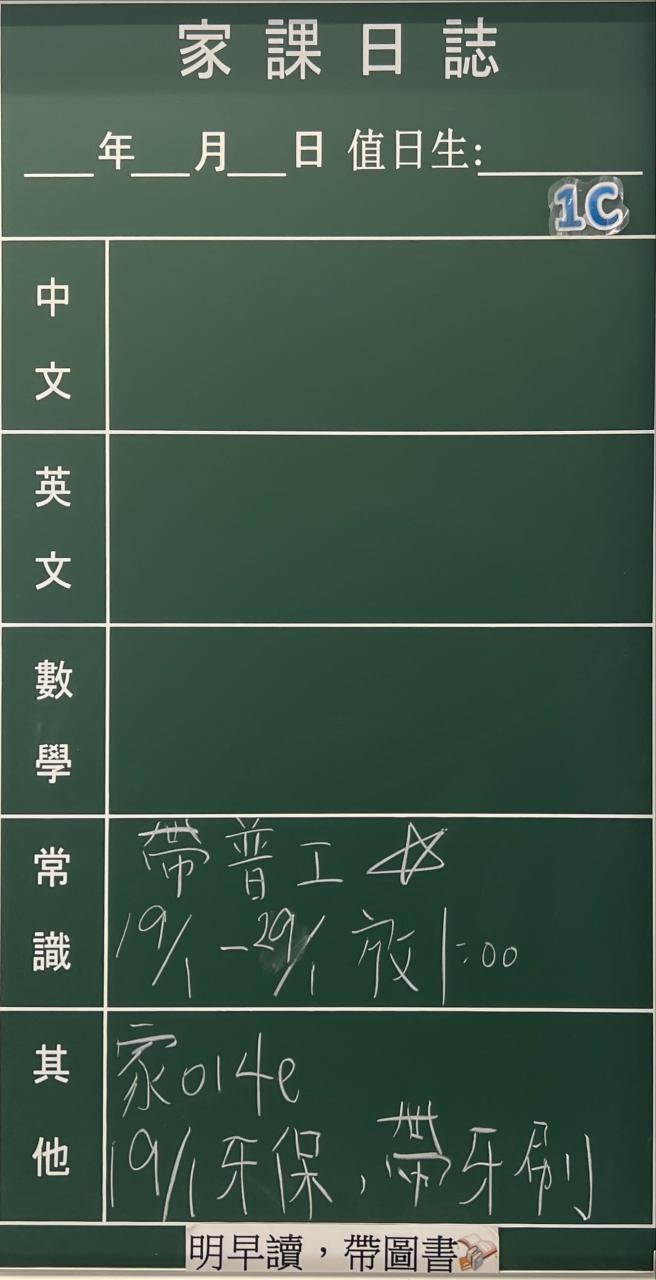 家課日誌
___年___月___日 值日生:________
1C
中文
英文
數學
常識
帶普工☆
19/1 - 29/1 放1:00
其他
家014e
19/1牙保，帶牙刷
明早讀，帶圖書